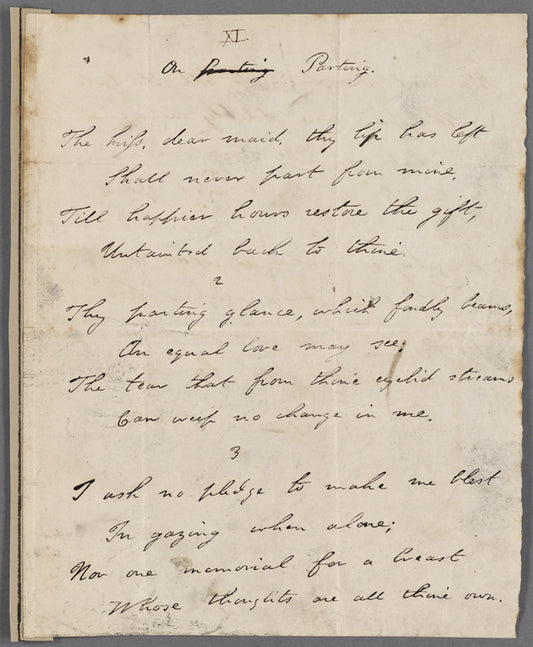 XI.
On parting Parting.
The kiss, dear maid, thy lip has left
Shall never part from mine,
Till happier hours restore the gift,
Untainted back to thine.
2
Thy parting glance, which fondly beams,
An equal love may see;
The tear that from thine eyelid streams
Can weep no change in me.
3
I ask no pledge to make me blest
In gazing when alone;
Nor one memorial for a breast
Whose thoughts are all thine own.